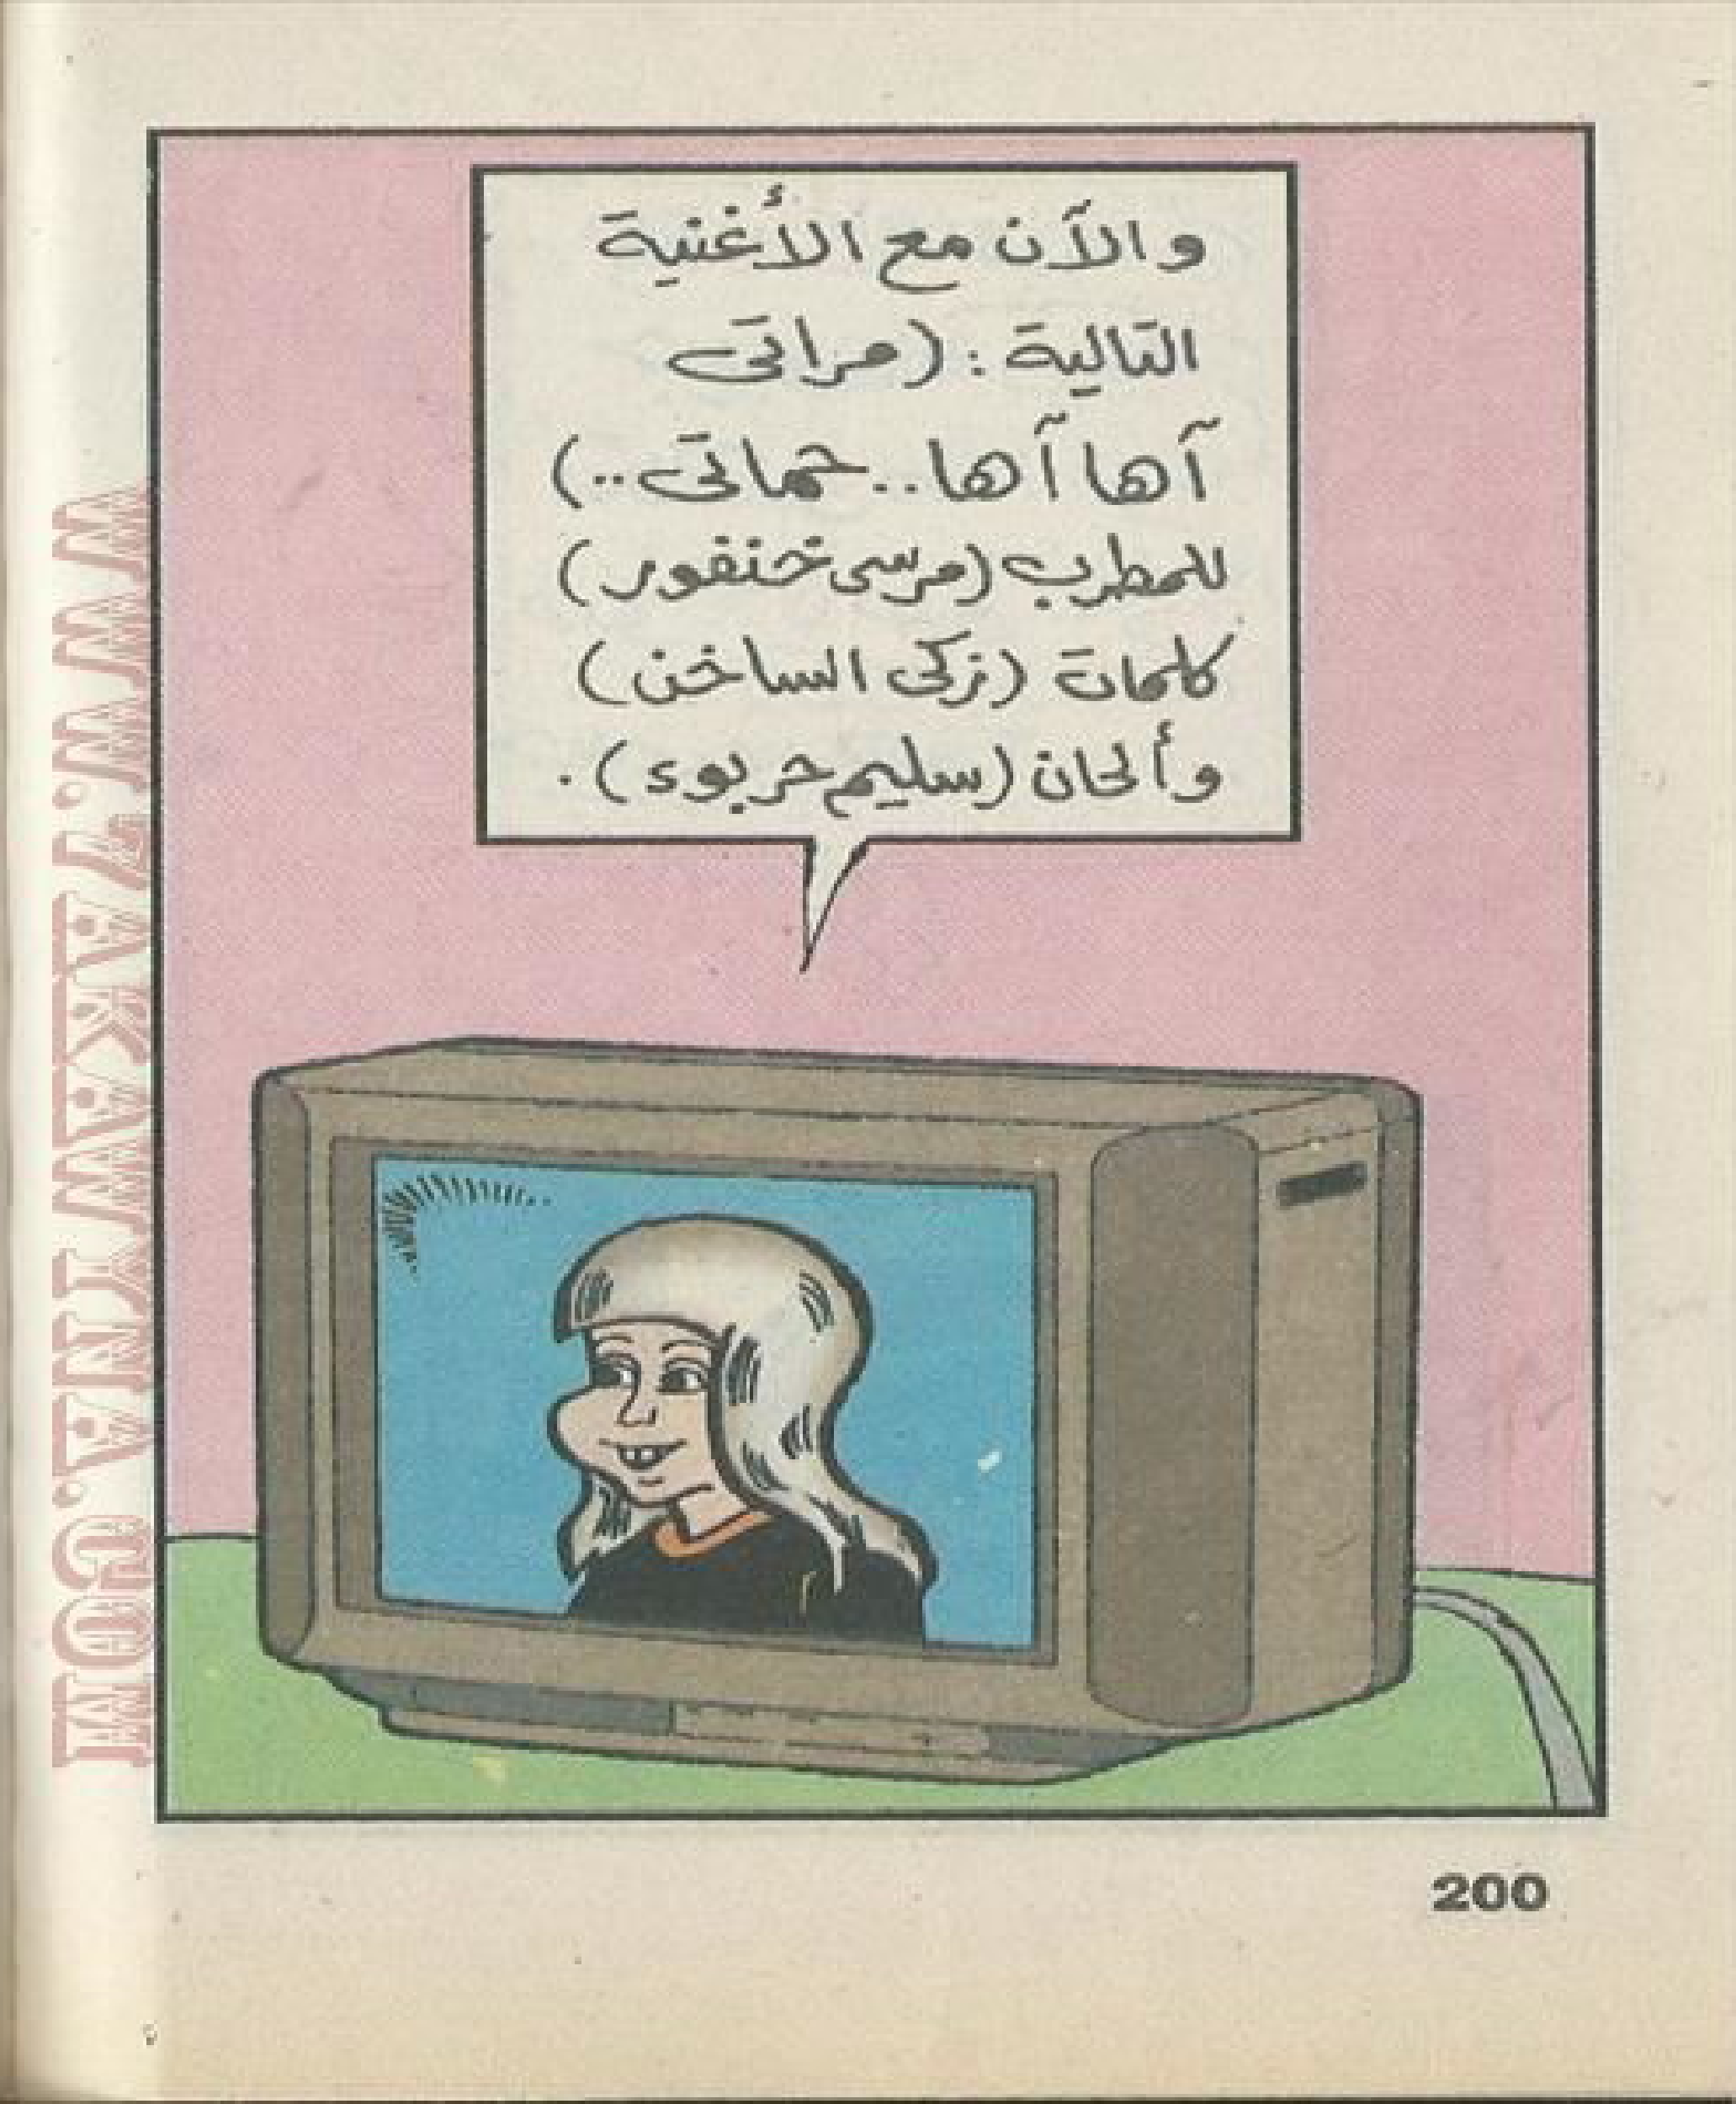 والآن مع الأغنية
التالية : (مراتى
آها آها.. حماتى ..)
للمطرب (مرسى خنفور)
كلمات (زكى الساخن)
وألحان (سليم حربوء) .
WWW.7AKAWITNA.COM
200